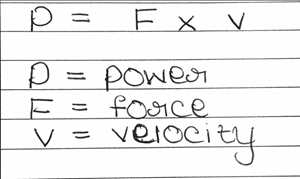 P = F x v
P = power
F = force
v = velocity